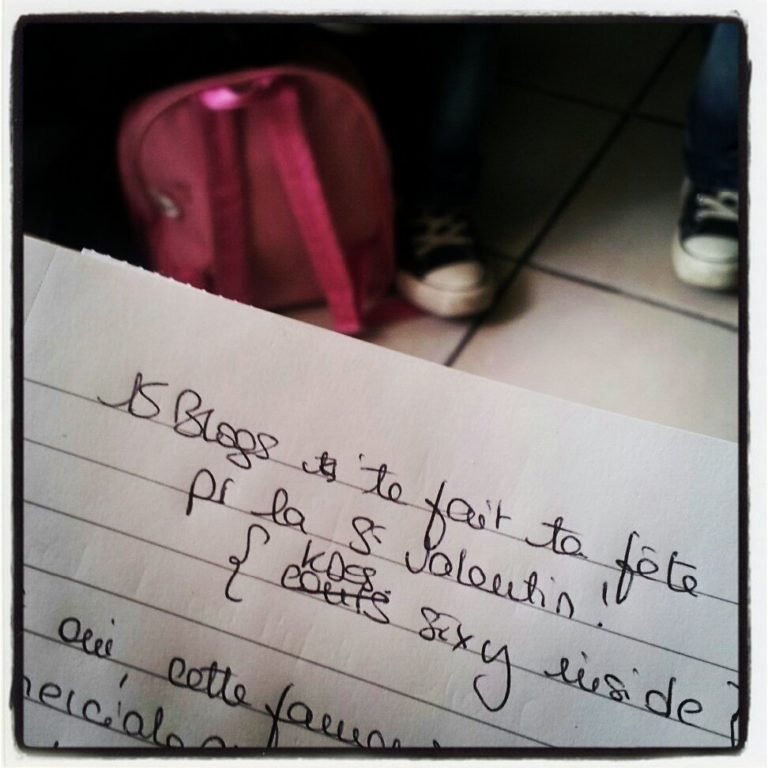 15 Blogs te fait ta fête
pr la St Valentin !
{ KDOS sexy inside }
oui, cette fameu
merciale